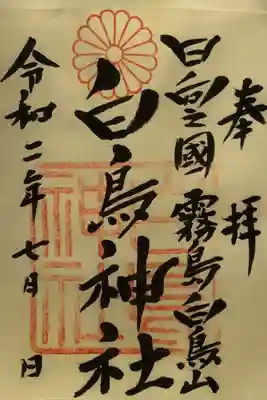 奉拝
日向之國 霧島白鳥山
白鳥神社
令和二年七月 日